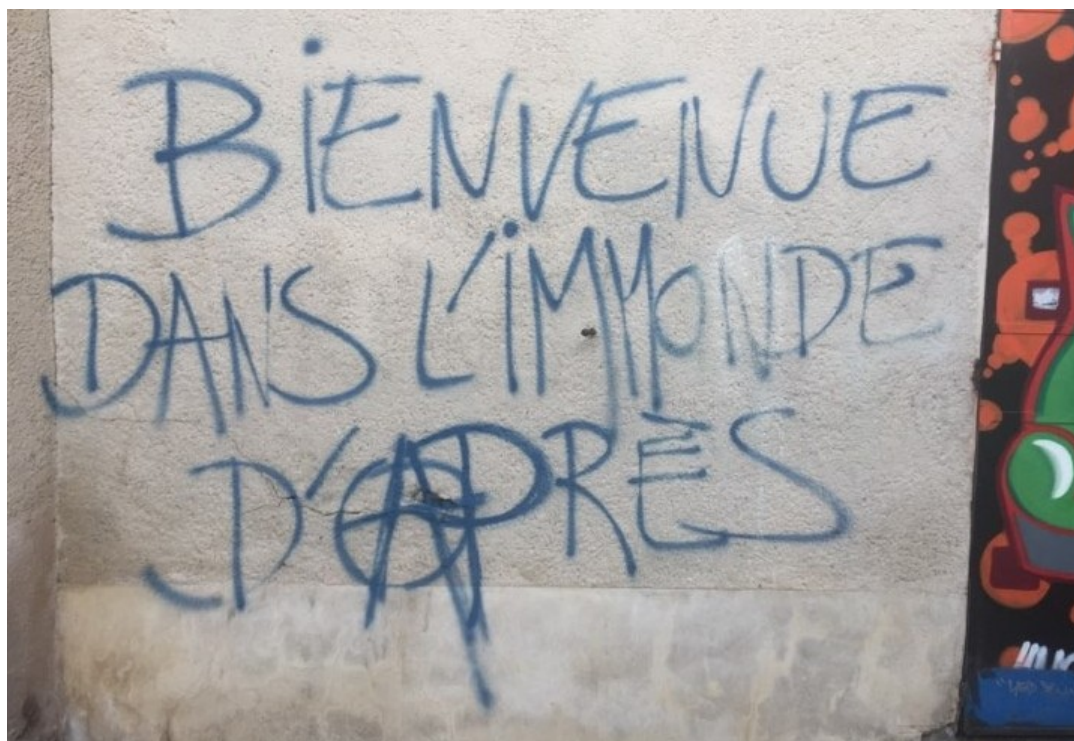 BiENVENUE
DANS L'iMMONDE
D'APRÈS